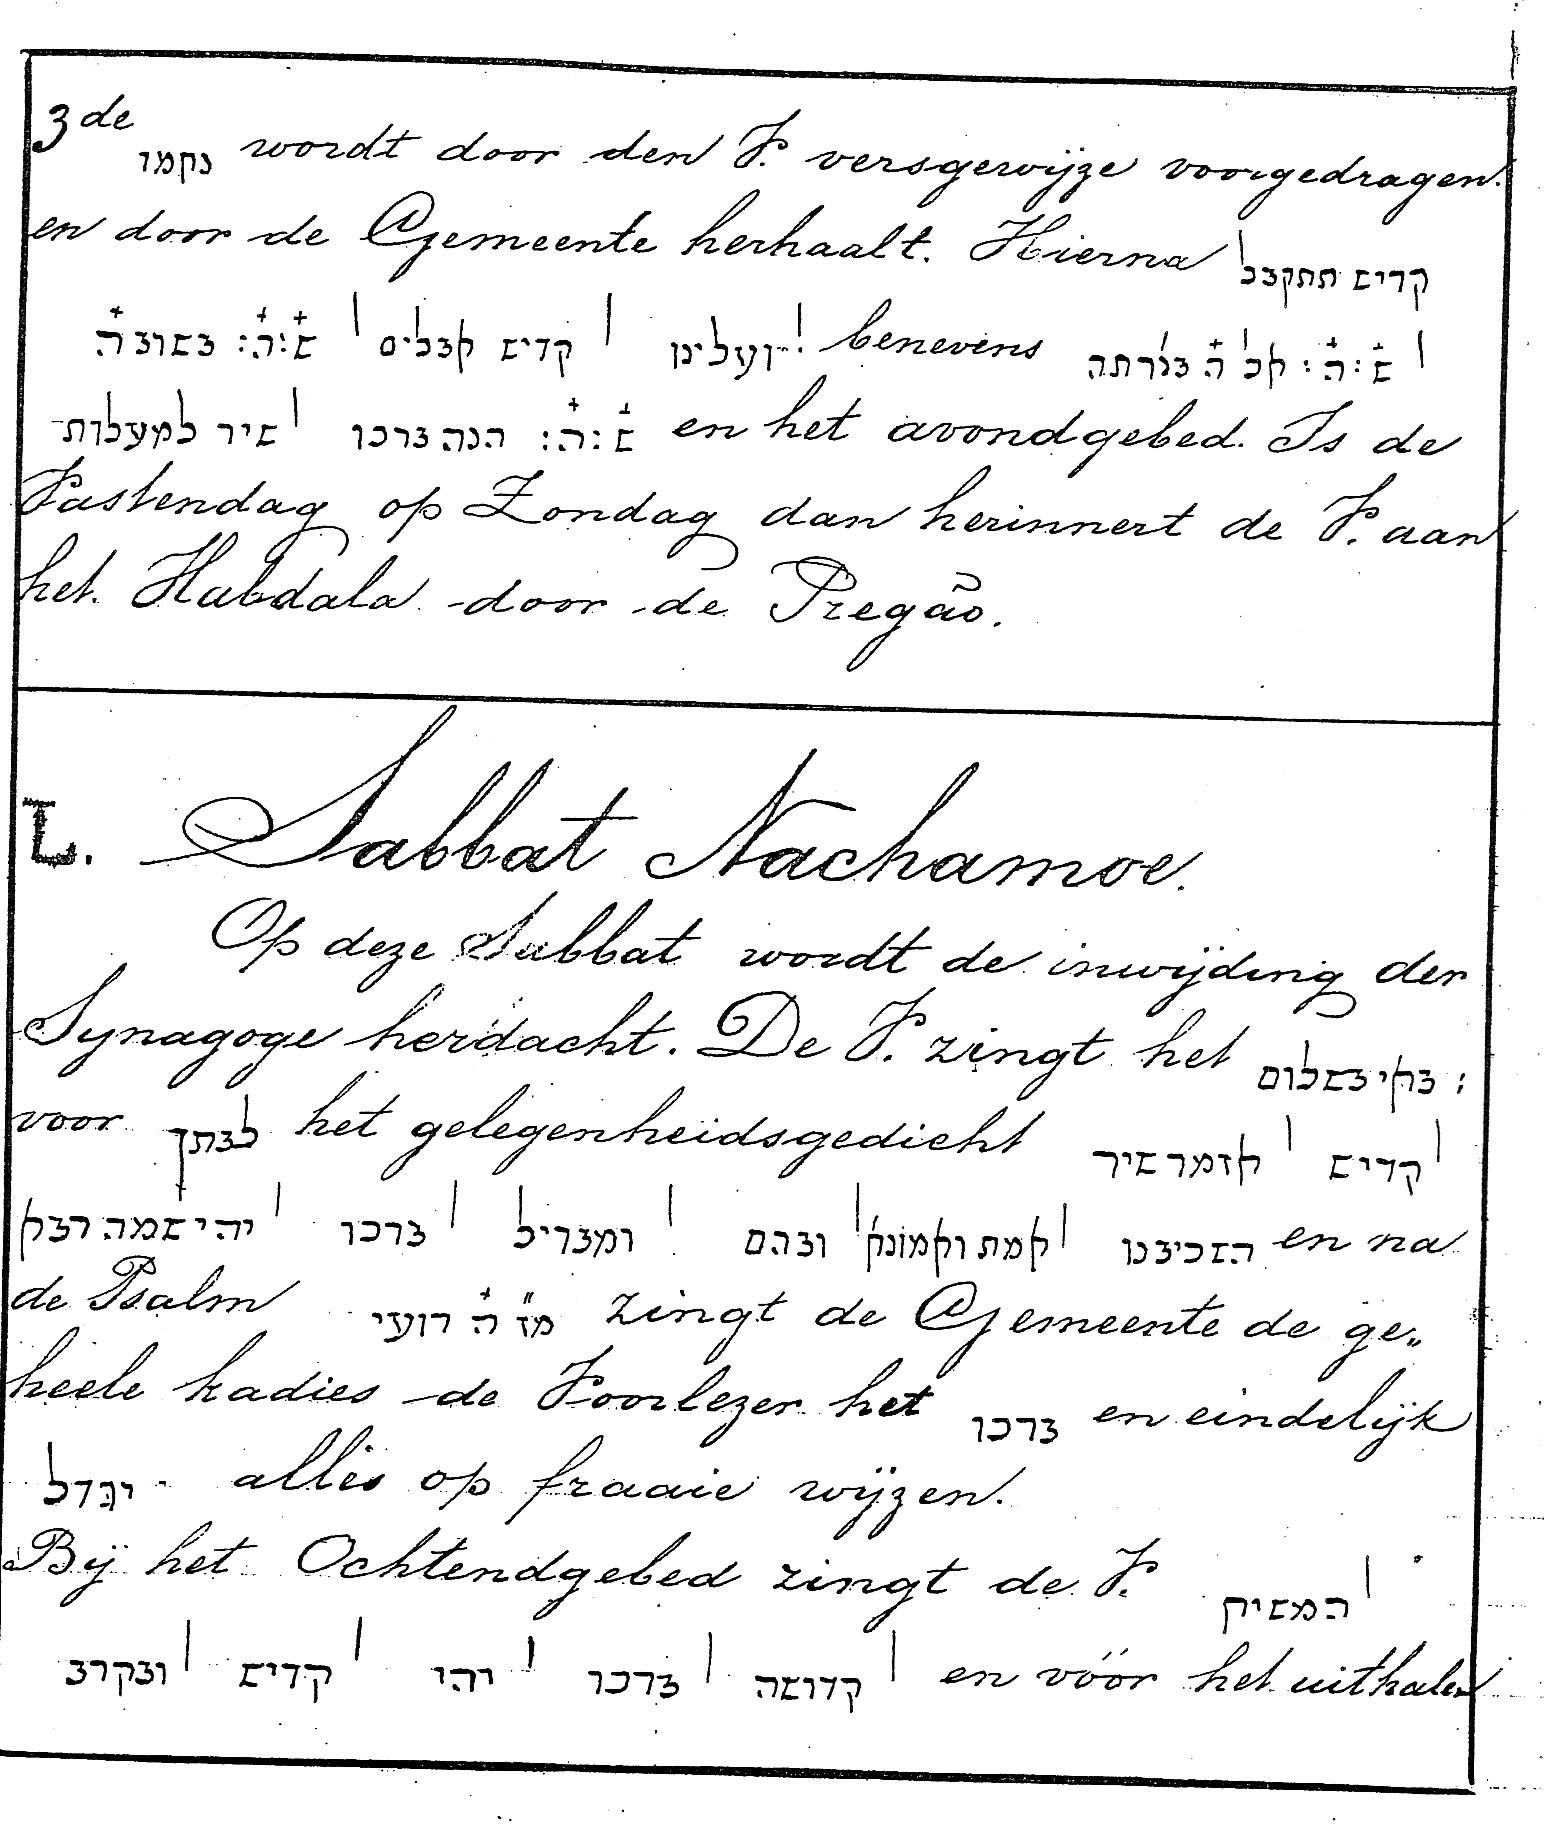 3de נחמו wordt door den V. versgewijze voorgedragen.
en door de Gemeente herhaalt. Hierna קדיש תתקבל
| ש:ה: אל ה בגרתה benevens ועלינו | קדיש אבלים | ש:ה: בשוב ה
ש:ה: הנה ברכו | שיר למעלות en het avondgebed. Is de
Vastendag op Zondag dan herinnert de V. aan
het Habdala door de Pregão.
נ. Sabbat Nachamoe.
Op deze Sabbat wordt de inwijding der
Synagoge herdacht. De V. zingt het באי בשלום :
voor לבתך het gelegenheidsgedicht אזמר שיר | קדיש |
יהי שמה רבא | ברכו | ומבדיל | ובהם | אמת ואמונה | השכיבנו en na
de Psalm מז׳ ה רועי zingt de Gemeente de ge„
heele kadies de Voorlezer het ברכו en eindelijk
יגדל alles op fraaie wijzen.
Bij het Ochtendgebed zingt de V. המשיח |
ובקרב | קדיש | יהי | ברכו | קדושה | en vóór het uithalen